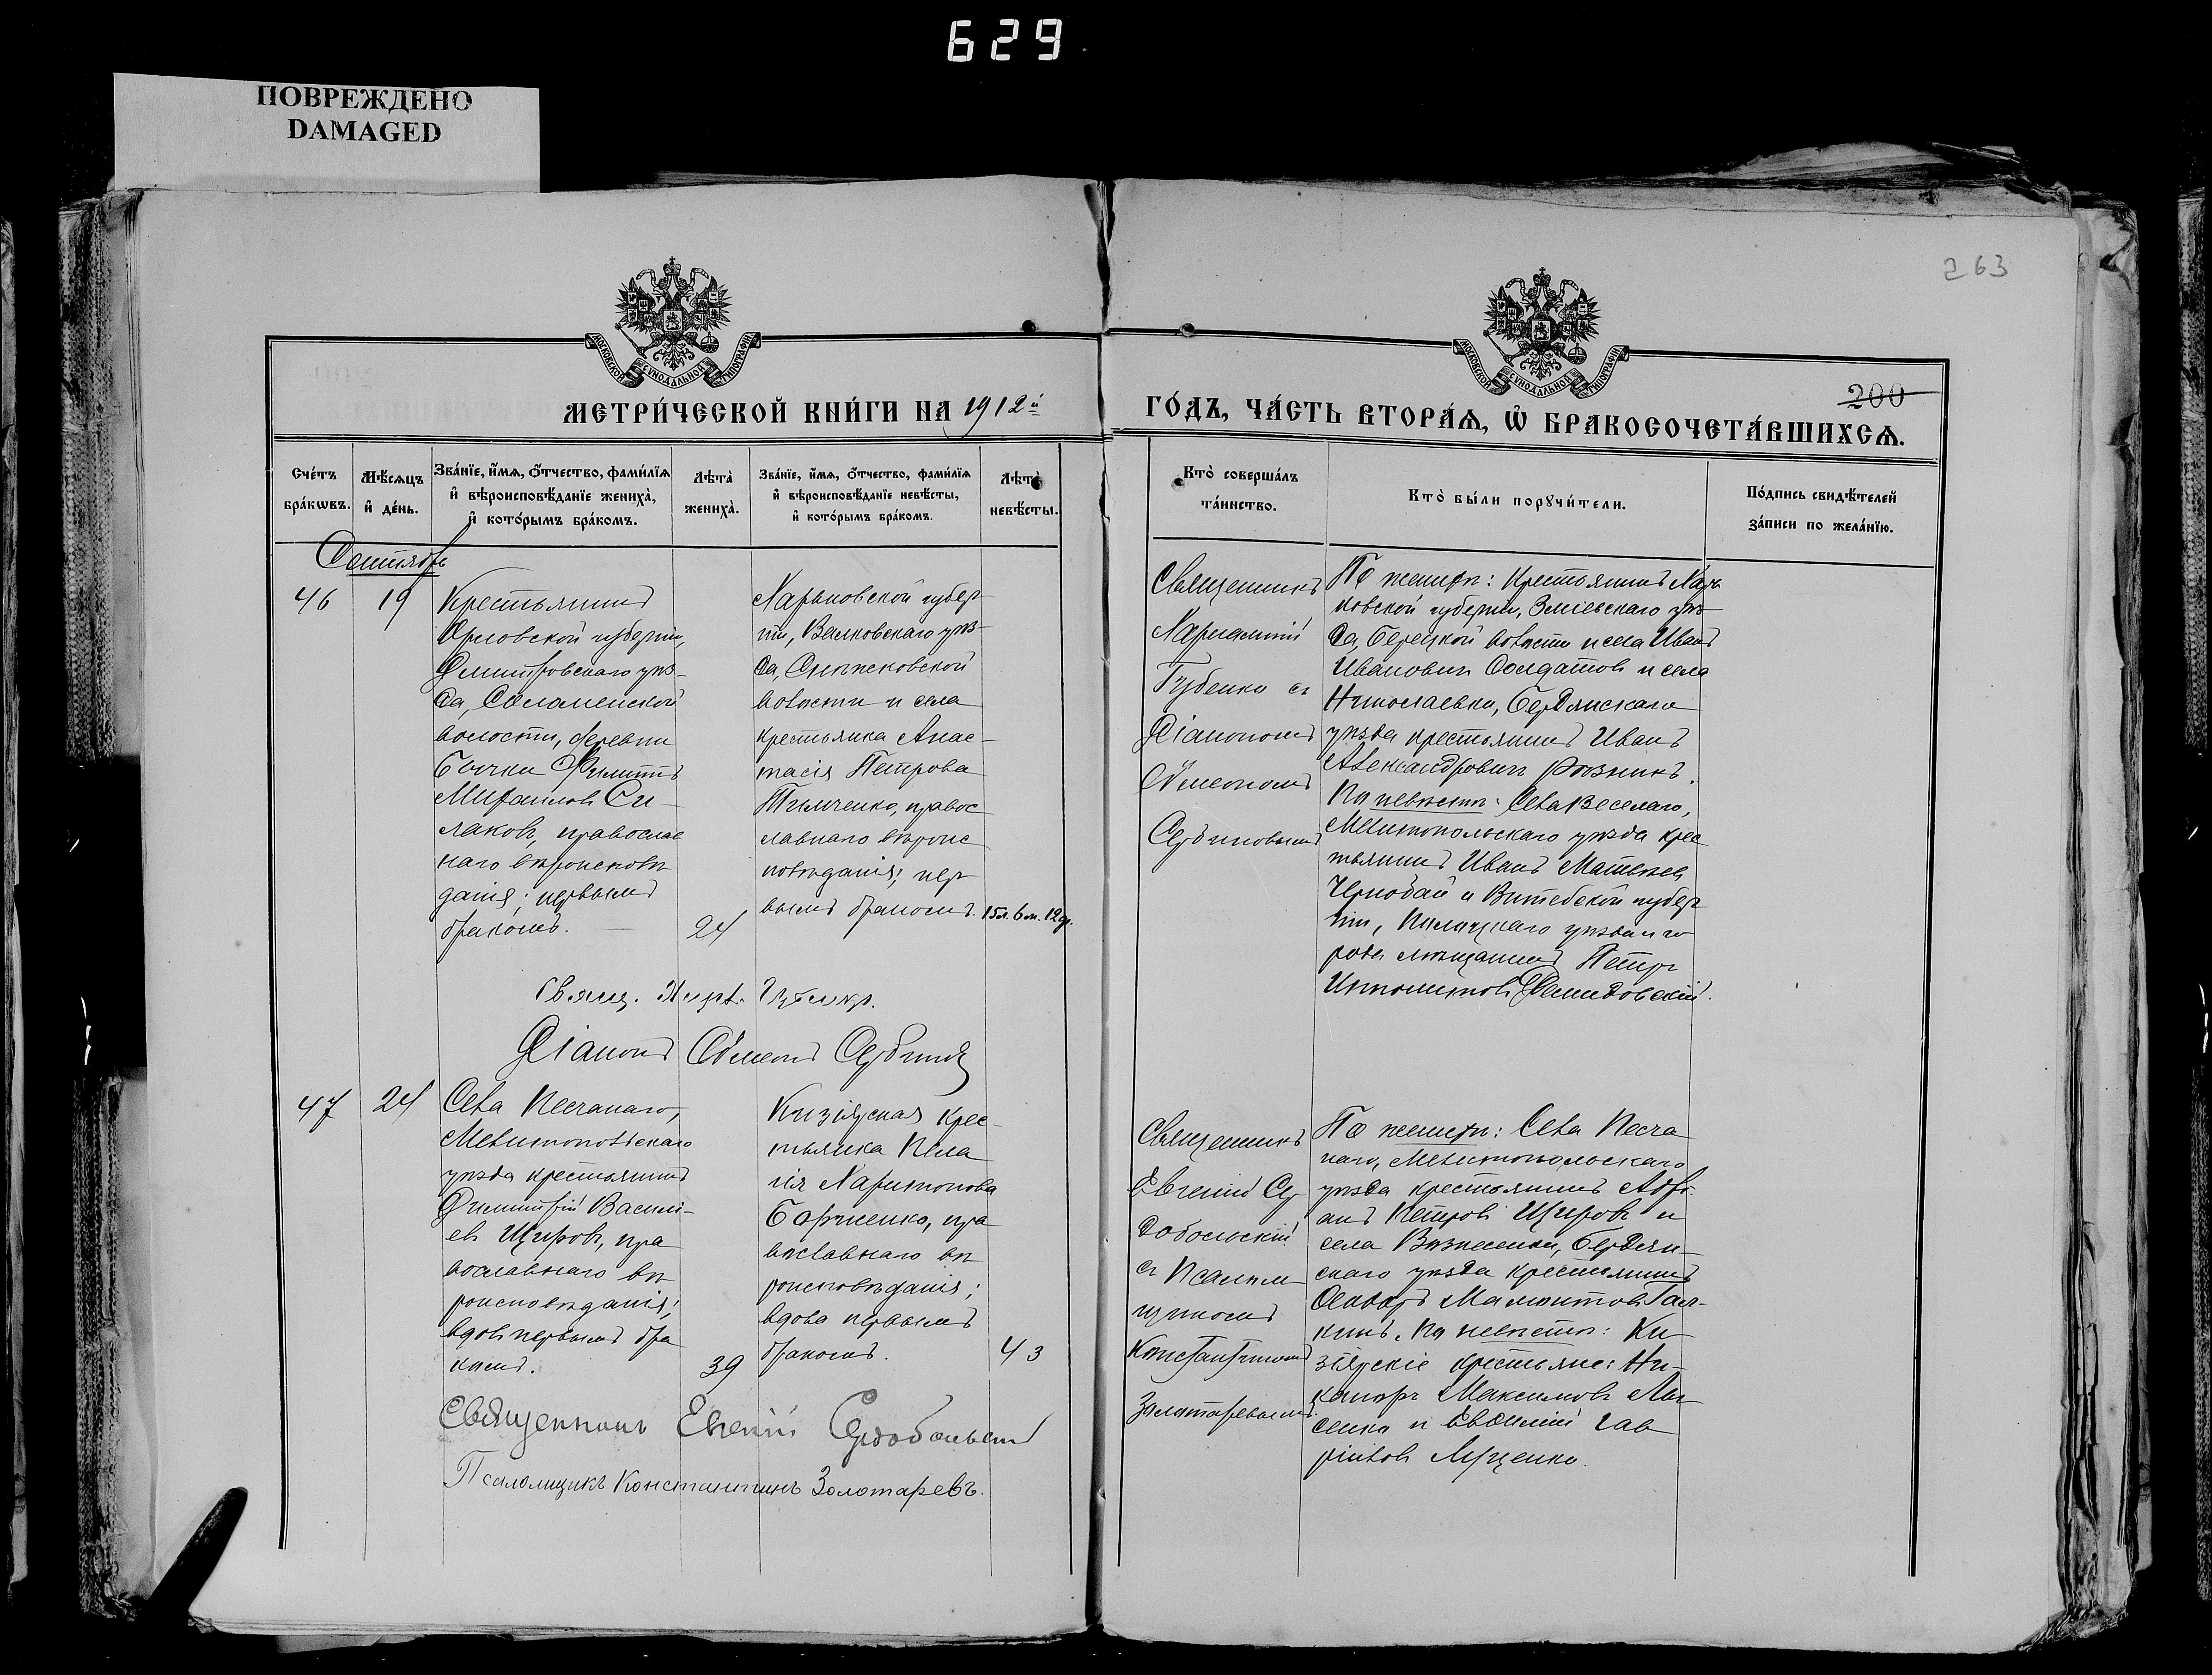 629
ПОВРЕЖДЕНО
DAMAGED
263
МОСКОВСКОЙ СѴНОДАЛЬНОЙ ТИПОГРАФІИ
МОСКОВСКОЙ СѴНОДАЛЬНОЙ ТИПОГРАФІИ
200
МЕТРИ́ЧЕСКОЙ КНИ́ГИ НА 1912й
ГО́ДЪ, ЧА́СТЬ ВТОРА́Ѧ, Ѽ БРАКОСОЧЕТА́ВШИХСѦ.
Сче́тъ бра́кѡвъ.
Мѣ́сѧцъ и҆ де́нь.
Зва́нїе, и҆́мѧ, ѻ҆́тчество, фами́лїѧ
и҆ вѣроисповѣ́данїе жениха̀,
и҆ кото́рымъ бра́комъ.
Лѣта̀ жениха̀.
Зва́нїе, и҆́мѧ, ѻ҆́тчество, фами́лїѧ
и҆ вѣроисповѣ́данїе невѣ́сты,
и҆ кото́рымъ бра́комъ.
Лѣта̀ невѣ́сты.
Кто̀ соверша́лъ
та́инство.
Кто̀ бы́ли порꙋчи́тели.
По́дпись свидѣ́телей
за́писи по жела́нїю.
Сентябрь
46
19
Крестьянинъ
Орловской губерніи,
Дмитровскаго уѣз-
да, Соломенской
волости, деревни
Бычки Филиппъ
Михаиловъ Си-
лаковъ, православ
наго вѣроисповѣ
данія; первымъ
бракомъ.
24
Харьковской губер-
ніи, Валковскаго уѣз-
да,
волости и села
крестьянка Анас-
тасія Петрова
Тимченко, правос
лавнаго вѣроис
повѣданія; пер
вымъ бракомъ.
15л. 6м. 12д.
Священникъ
Харлампій
Губенко съ
Діакономъ
Сѵмеономъ
Сербиновымъ
По женихѣ: Крестьянинъ Харь
ковской губерніи, Зміевскаго уѣз
да, Берецкой волости и села Иванъ
Ивановичъ Солдатовъ и села
Николаевки, Бердянскаго
уѣзда крестьянинъ Иванъ
Александровичъ Рѣзникъ.
По невѣстѣ: Села Веселаго,
Мелитопольскаго уѣзда крес
тьянинъ Иванъ Матвѣевъ
Чернобай и Витебской губер
ніи, Полоцкаго уѣзда и го
рода мѣщанинъ Петръ
Ипполитовъ Демидовскій.
Свящ. Харл. Губенко.
Діаконъ Сѵмеонъ Сербиновъ
47
24
Села Песчанаго,
Мелитопольскаго
уѣзда крестьянинъ
Димитрій Василь-
евъ Щировъ, пра
вославнаго вѣ
роисповѣданія;
вдовъ первымъ бра
комъ.
39
Кизіярская крес-
тьянка Пела
гія Харитонова
Борченко, пра
вославнаго вѣ
роисповѣданія;
вдова первымъ
бракомъ.
43
Священникъ
Евгеній Сер
добольскій
съ Псалом-
щикомъ
Константиномъ
Золотаревымъ
По женихѣ: Села Песча
наго, Мелитопольскаго
уѣзда крестьянинъ Адрі-
анъ Петровъ Щировъ и
села Вознесенки, Бердян-
скаго уѣзда крестьянинъ
Ѳеодоръ Мамонтовъ Гал-
кинъ. По невѣстѣ: Ки-
зіярскіе крестьяне: Ни-
каноръ Максимовъ Лы
сенко и Евѳимій Гав
ріиловъ Луценко.
Священникъ Евгеній Сердобольскій
Псаломщикъ Константинъ Золотаревъ.